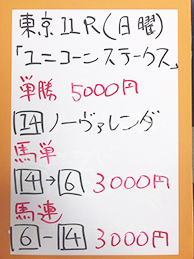 東京11R(日曜)
「ユニコーンステークス」
単勝 5000円
14 ノーヴァレンダ
馬単
14→6 3000円
馬連
6-14 3000円